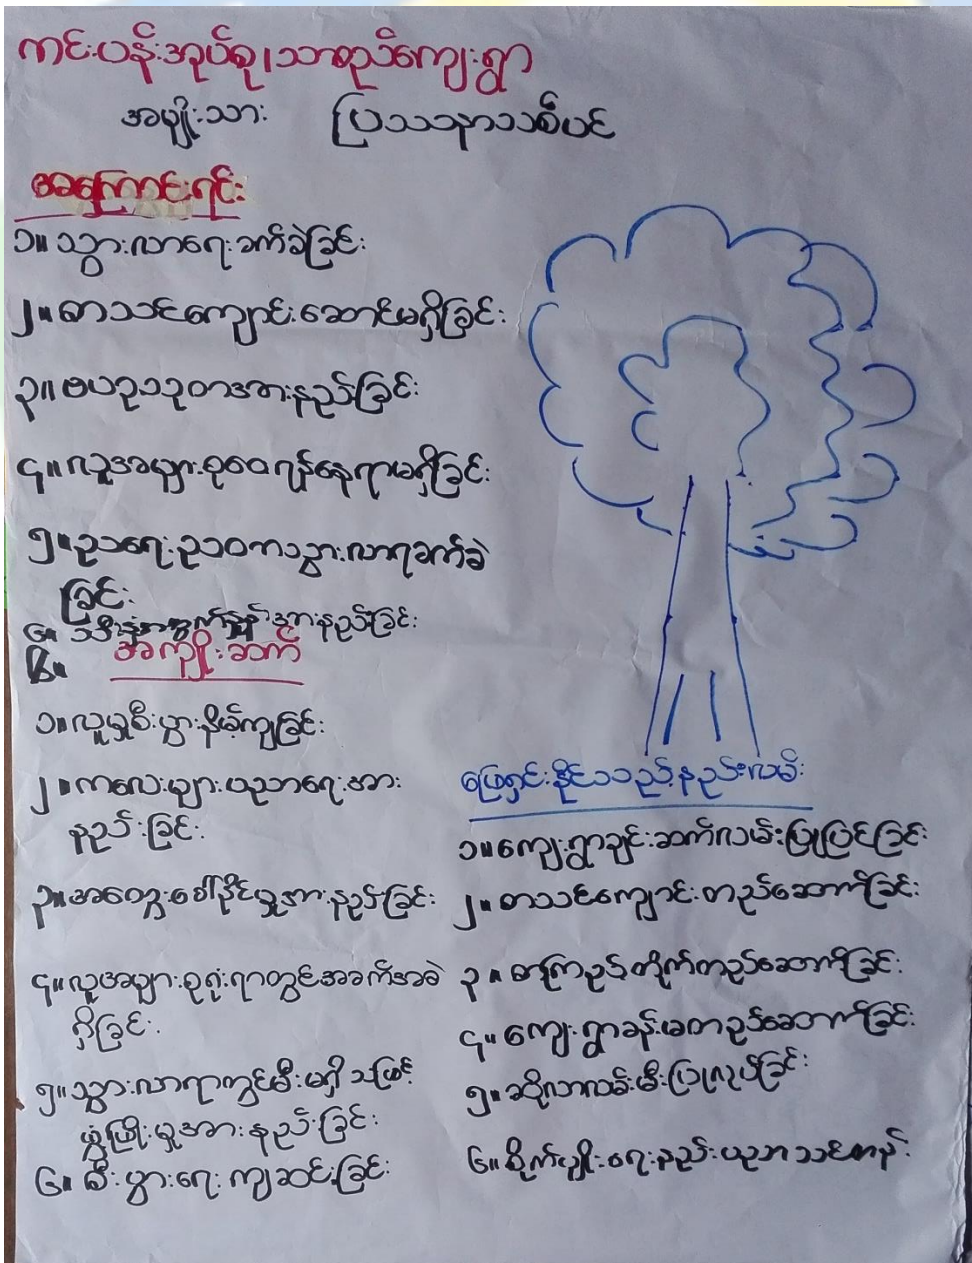 ကင်းပန်းအုပ်စု၊သာစည်ကျေးရွာ
အမျိုးသား ပြဿနာသစ်ပင်
အကြောင်းရင်း
၁။ သွားလာရေးခက်ခဲခြင်း
၂။ စာသင်ကျောင်းဆောင်မရှိခြင်း
၃။ ဗဟုသုတအားနည်းခြင်း
၄။ လူအများစုဝေးရန်နေရာမရှိခြင်း
၅။ ညရေးညတာသွားလာရခက်ခဲ
ခြင်း
၆။ သီးနှံအထွက်နှုန်းအားနည်းခြင်း
အကျိုးဆက်
၁။ လူမှုစီးပွားနိမ့်ကျခြင်း
၂။ ကလေးများပညာရေးအား
နည်းခြင်း
၃။ အတွေးခေါ်နိုင်မှုအားနည်းခြင်း
၄။ လူအများစုရုံးရာတွင်အခက်အခဲ
ရှိခြင်း
၅။ သွားလာရာတွင်မီးမရှိသဖြင့်
ဖွံ့ဖြိုးမှုအားနည်းခြင်း
၆။ စီးပွားရေးကျဆင်းခြင်း
ဖြေရှင်းနိုင်သည့်နည်းလမ်း
၁။ ကျေးရွာချင်းဆက်လမ်းပြုပြင်ခြင်း
၂။ စာသင်ကျောင်းတည်ဆောက်ခြင်း
၃။ စာကြည့်တိုက်တည်ဆောက်ခြင်း
၄။ ကျေးရွာခန်းမတည်ဆောက်ခြင်း
၅။ ဆိုလာလမ်းမီးပြုလုပ်ခြင်း
၆။ စိုက်ပျိုးရေးနည်းပညာသင်တန်း